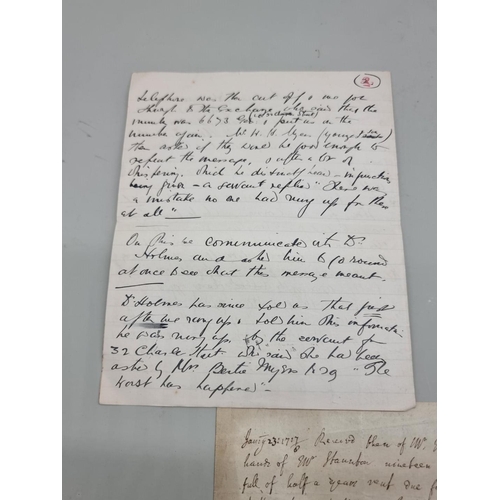 2
telephone was then cut off & we got
through to the Exchange who said that the
number was 6673 Ger. & put us on the
number again. Mr H. H. Myer (young
then asked if they would be good enough to
repeat the message, & after a lot of
whispering, which he distinctly heard — instructions
being given — a servant replied "There was
a mistake no one had rung up for them
at all"
On this we communicated with Dr
Holmes and asked him to go round
at once to see what this message meant.
Dr Holmes has since told us that just
after we rang up & told him this information
he was rung up by the servant of
32 Charles Street who said she had been
asked by Mrs Bertie Myers to say "The
worst has happened" —
Received then of Mr.
hands of Mr Staunton nineteen
full of half a years rent due